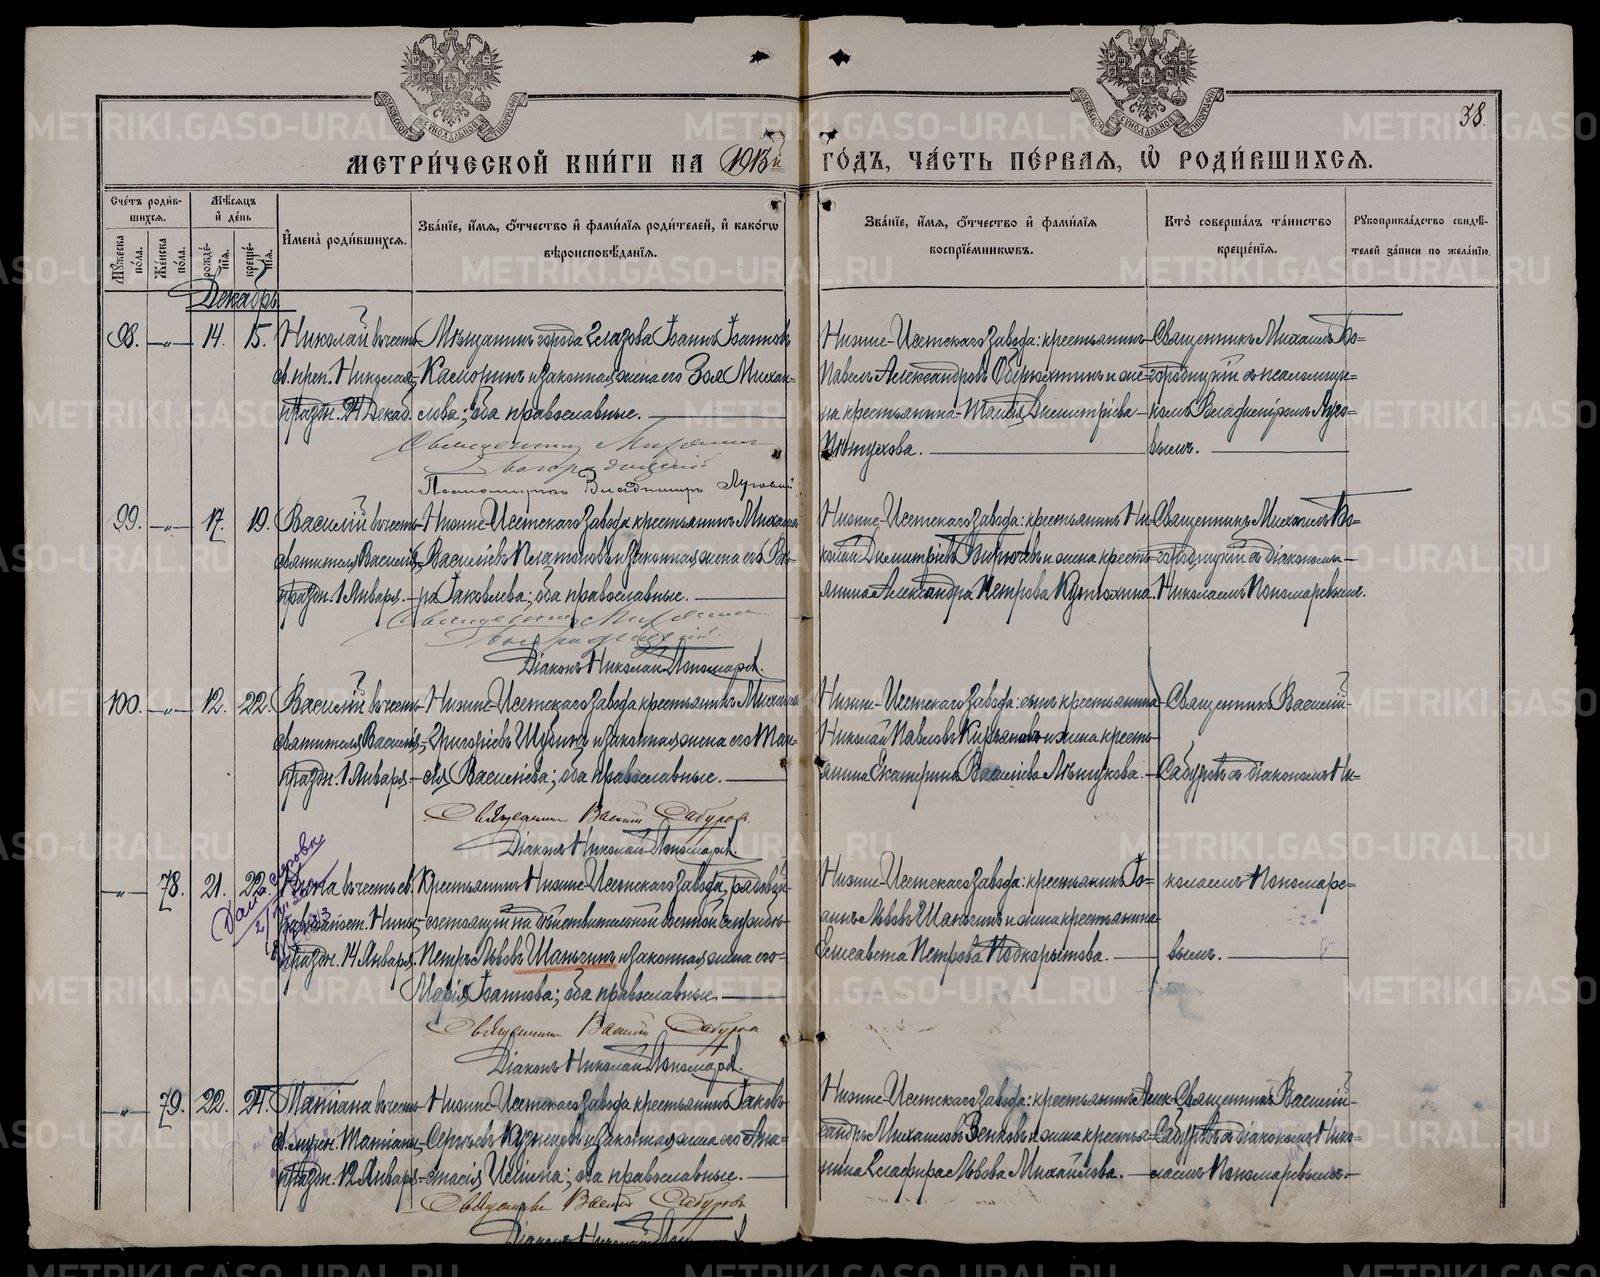 38.
МЕТРИЧЕСКОЙ КНИГИ НА 1913й ГОДЪ, ЧАСТЬ ПЕРВАЯ, Ѡ РОДИВШИХСЯ.
Счетъ родившихся.
Мужеска пола.
Женска пола.
Мѣсяцъ и день
рожденія.
крещенія.
Имена родившихся.
Званіе, имя, отчество и фамилія родителей, и какогѡ вѣроисповѣданія.
Званіе, имя, отчество и фамилія воспріемникѡвъ.
Кто совершалъ таинство крещенія.
Рукоприкладство свидѣтелей записи по желанію.
Декабрь
98. —„— 14. 15.
Николай въ честь
св. преп. Николая,
праздн. 24 Декаб.
Мѣщанинъ города Глазова Іоаннъ Іоанновъ
и законная жена его Зоя Михаи-
лова; оба православные.
Священникъ Михаилъ
Псаломщикъ Владимиръ Луговый
Нижне-Исетскаго завода: крестьянинъ
Павелъ Александровъ и же-
на крестьянина Димитріева
Пѣтухова.
Священникъ Михаилъ Бо-
городицкій съ псаломщи-
комъ Владиміромъ Луго-
вымъ.
99. —„— 17. 19.
Василій въ честь
святителя Василія,
праздн. 1 Января.
Нижне-Исетскаго завода крестьянинъ Михаилъ
Васильевъ Платоновъ и законная жена его Вѣ-
ра Іаковлева; оба православные.
Священникъ Михаилъ
Діаконъ Николай Пономаревъ.
Нижне-Исетскаго завода: крестьянинъ Ни-
колай Димитріевъ и жена кресть-
янина Александра Петрова
Священникъ Михаилъ Бо-
городицкій съ діакономъ
Николаемъ Пономаревымъ.
100. —„— 12. 22.
Василій въ честь
святителя Василія,
праздн. 1 Января.
Нижне-Исетскаго завода крестьянинъ Михаилъ
Григоріевъ Шубинъ и законная жена его
Васильева; оба православные.
Священникъ Василій Сабуровъ
Діаконъ Николай Пономаревъ.
Нижне-Исетскаго завода: сынъ крестьянина
Николай Павловъ Кирьяновъ и жена кресть-
янина Екатерина Васильева Лѣтукова.
Священникъ Василій
Сабуровъ съ діакономъ Ни-
—„— 78. 21. 22.
Нина въ честь св.
равноапост. Нины,
праздн. 14 Января.
Крестьянинъ Нижне-Исетскаго завода, рядовой,
состоящій на дѣйствительной военной службѣ
Петръ Львовъ Шаньгинъ и законная жена его
Марія Іоаннова; оба православные.
Священникъ Василій Сабуровъ
Діаконъ Николай Пономаревъ.
Нижне-Исетскаго завода: крестьянинъ Іо-
аннъ Львовъ Шаньгинъ и жена крестьянина
Елисавета Петрова Подкорытова.
колаемъ Пономаре-
вымъ.
—„— 79. 22. 24.
Татіана въ честь
св. мучен. Татіаны,
праздн. 12 Января.
Нижне-Исетскаго завода крестьянинъ Іаковъ
Сергѣевъ Кузнецовъ и законная жена его Ана-
стасія; оба православные.
Священникъ Василій Сабуровъ
Нижне-Исетскаго завода: крестьянинъ Алек-
сандръ Михаиловъ Зенковъ и жена крестья-
нина Глафира Львова Михайлова.
Священникъ Василій
Сабуровъ съ діакономъ Нико-
лаемъ Пономаревымъ.
METRIKI.GASO-URAL.RU